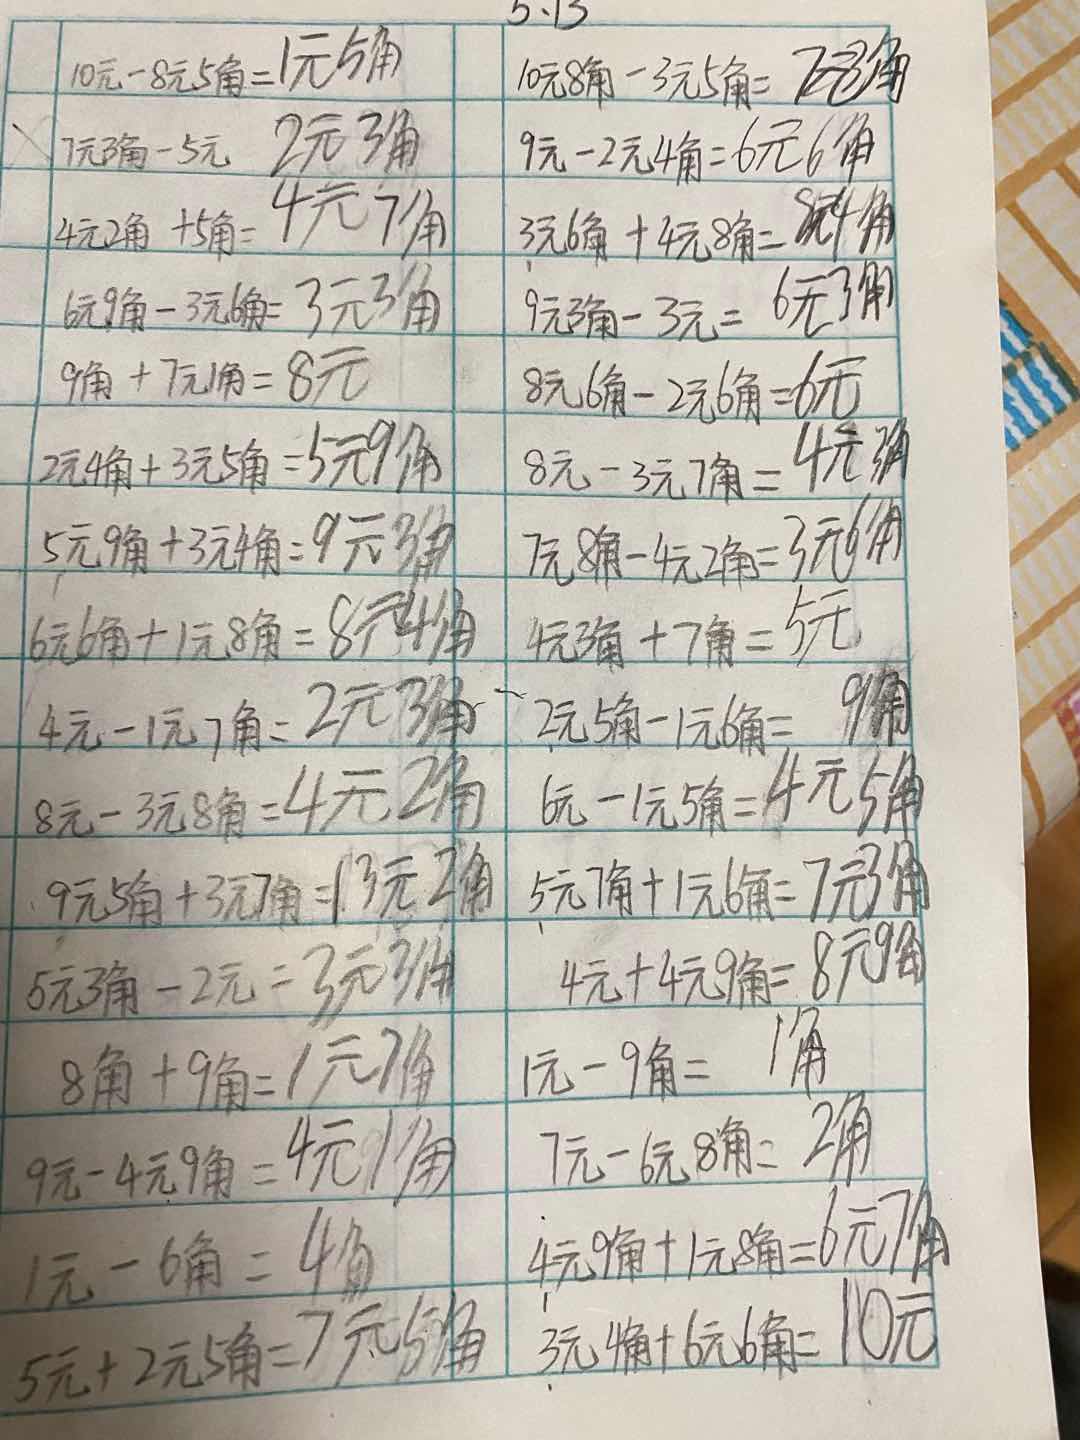 5.13
10元-8元5角=1元5角
10元8角-3元5角=7元3角
7元3角-5元 2元3角
9元-2元4角=6元6角
4元2角+5角=4元7角
3元6角+4元8角=8元4角
6元9角-3元6角=3元3角
9元3角-3元=6元3角
9角+7元1角=8元
8元6角-2元6角=6元
2元4角+3元5角=5元9角
8元-3元7角=4元3角
5元9角+3元4角=9元3角
7元8角-4元2角=3元6角
6元6角+1元8角=8元4角
4元3角+7角=5元
4元-1元7角=2元3角
2元5角-1元6角=9角
8元-3元8角=4元2角
6元-1元5角=4元5角
9元5角+3元7角=13元2角
5元7角+1元6角=7元3角
5元3角-2元=3元3角
4元+4元9角=8元9角
8角+9角=1元7角
1元-9角=1角
9元-4元9角=4元1角
7元-6元8角=2角
1元-6角=4角
4元9角+1元8角=6元7角
5元+2元5角=7元5角
3元4角+6元6角=10元